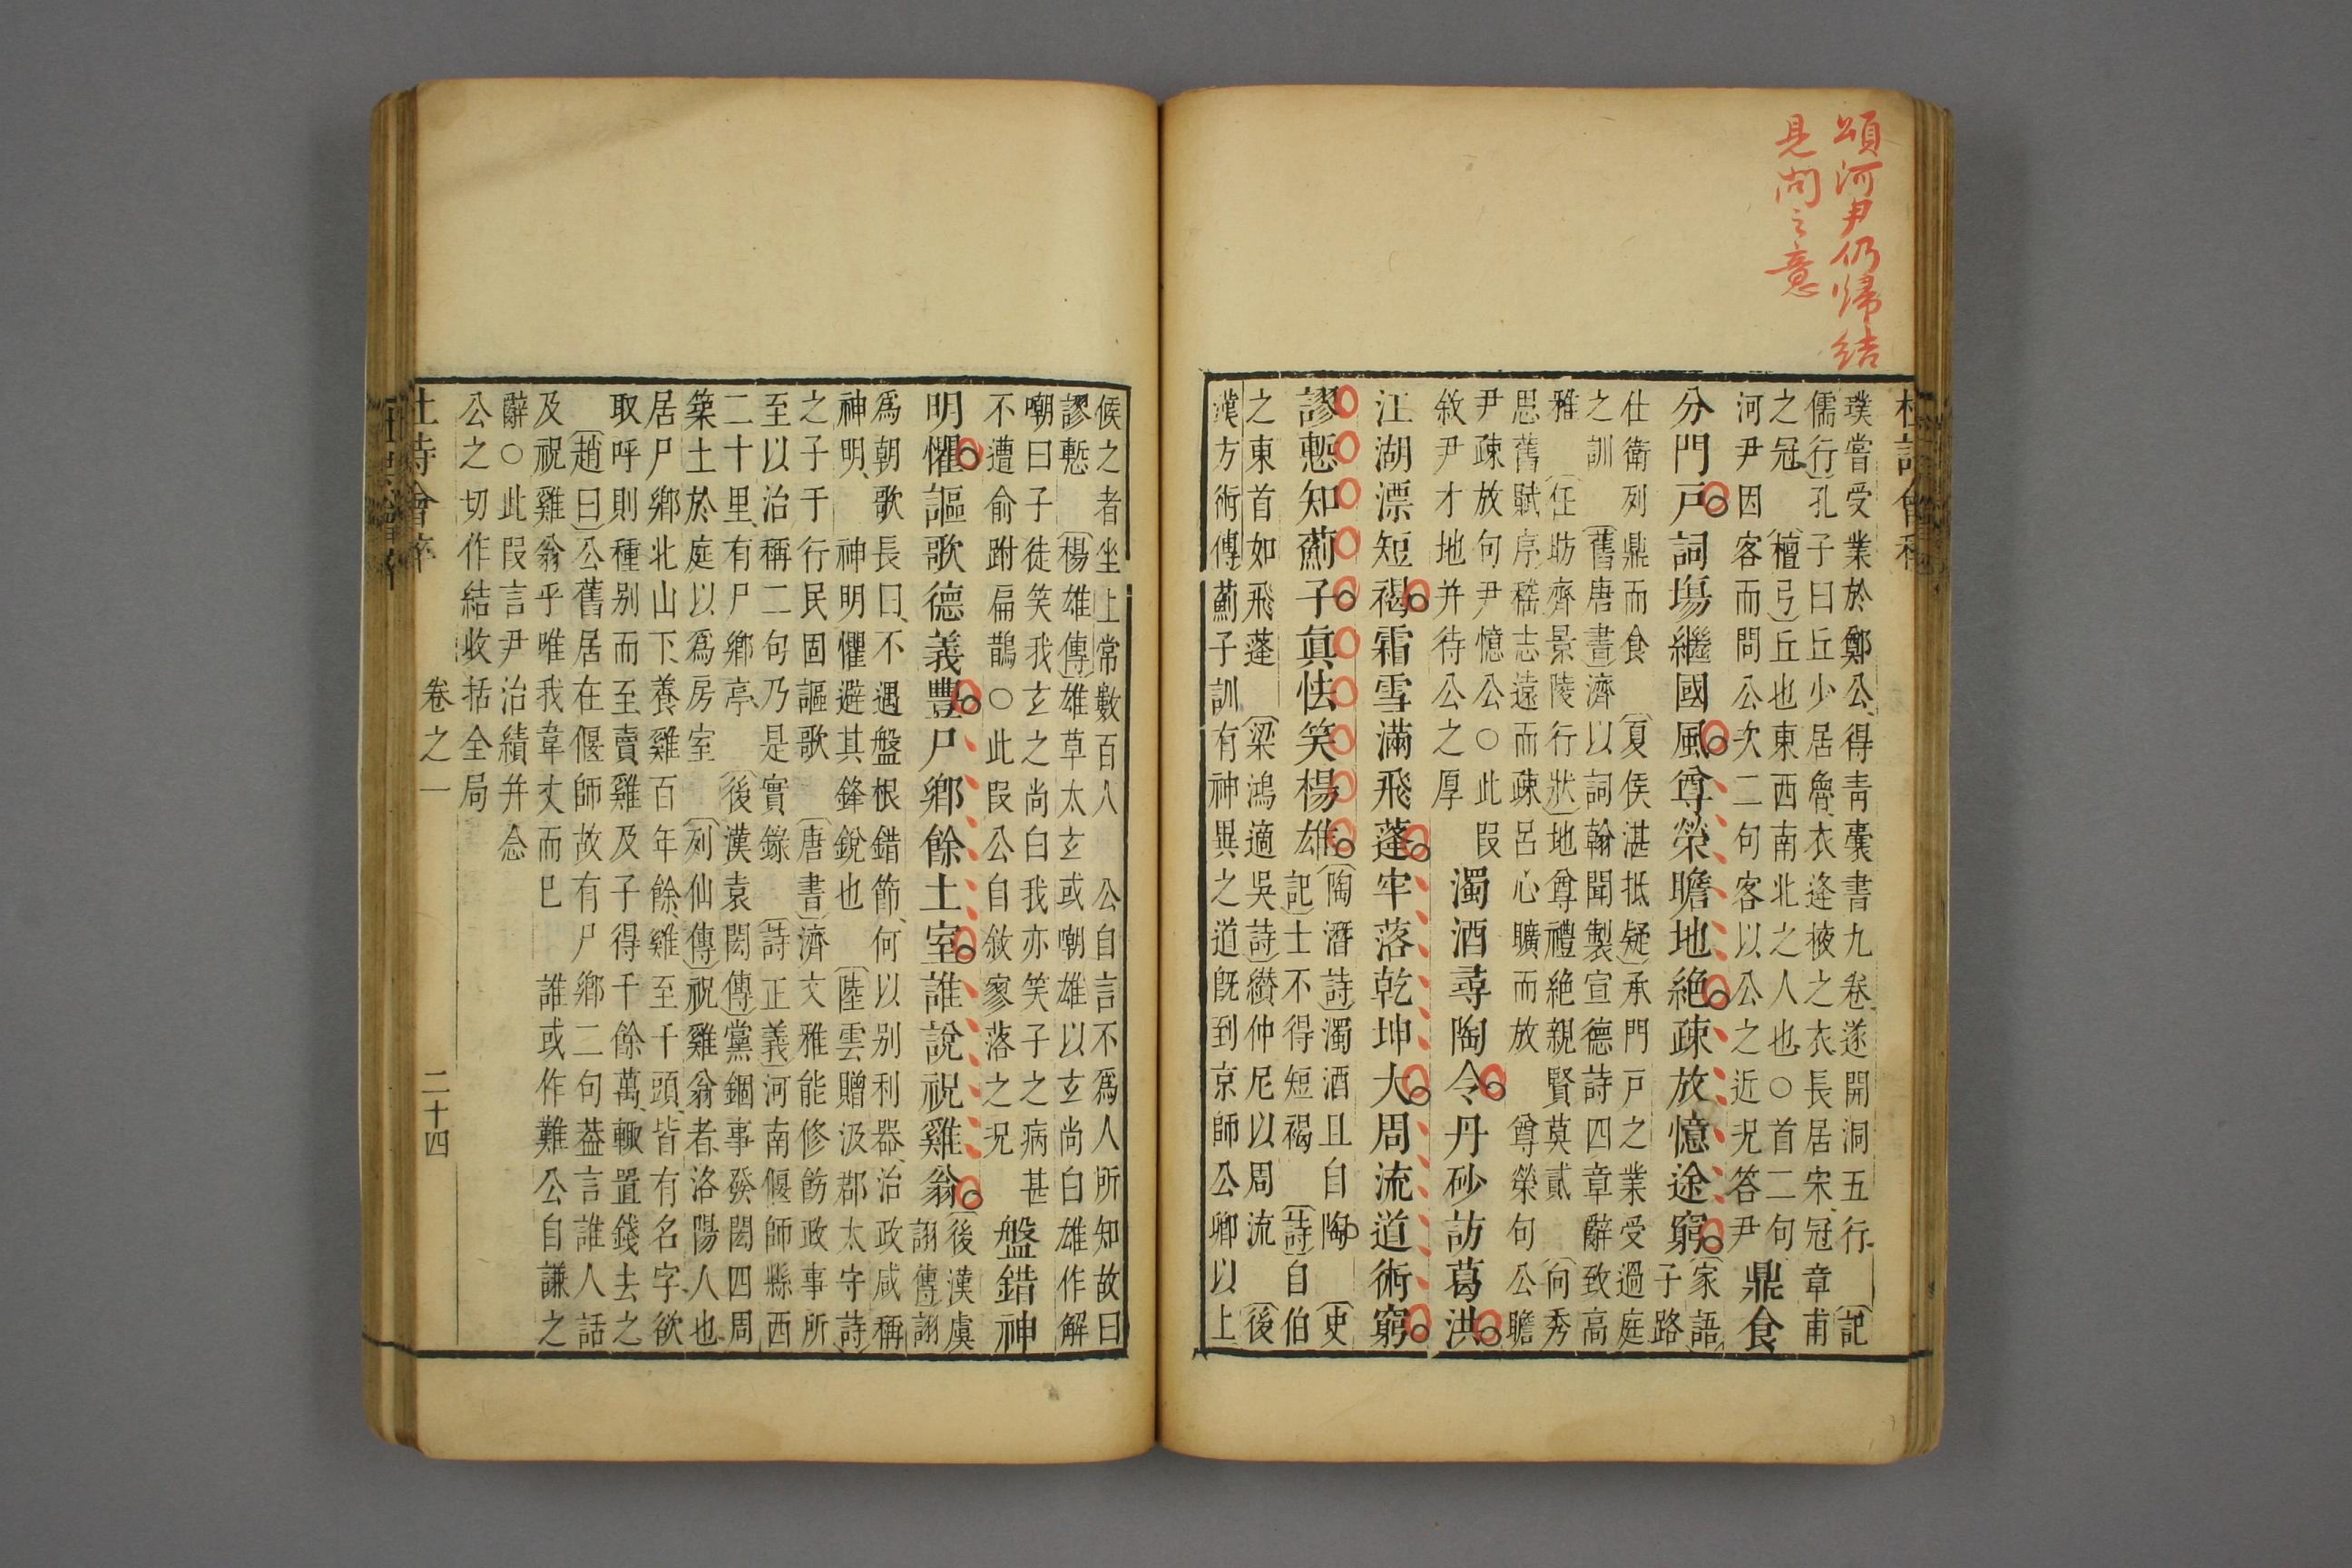 頌河尹仍歸結
見問之意
璞嘗受業於鄭公、得青囊書九卷、遂開洞五行、〔記
儒行〕孔子曰丘少居魯、衣逢掖之衣、長居宋、冠章甫
之冠、〔檀弓〕丘也東西南北之人也○首二句
河尹因客而問公次二句客以公之近况答尹
鼎食
分門戸詞塲繼國風尊榮瞻地絕疎放憶途窮
〔家語〕
子路
仕衛列鼎而食〔夏侯湛抵疑〕承門戸之業受過庭
之訓〔舊唐書〕濟以詞翰聞製宣德詩四章辭致高
雅〔任昉齊景陵行狀〕地尊禮絕親賢莫貳〔向秀
思舊賦序〕嵇志遠而疎呂心曠而放 尊榮句公瞻
尹疎放句尹憶公○此叚
敘尹才地并待公之厚
濁酒尋陶令丹砂訪葛洪
江湖漂短褐霜雪滿飛蓬牢落乾坤大周流道術窮
謬慙知薊子真怯笑楊雄
〔陶潛詩〕濁酒且自陶〔史
記〕士不得短褐〔詩〕自伯
之東首如飛蓬〔梁鴻適吳詩〕纉仲尼以周流〔後
漢方術傳薊子訓有神異之道旣到京師公卿以上
候之者坐上常數百人 公自言不爲人所知故曰
謬慙〔楊雄傳〕雄草太玄或嘲雄以玄尚白雄作解
嘲曰子徒笑我玄之尚白我亦笑子之病甚
不遭俞跗扁鵲○此叚公自敘寥落之况
盤錯神
明懼謳歌德義豐尸鄉餘土室誰說祝雞翁
〔後漢虞
詡傳〕詡
爲朝歌長曰、不遇盤根錯節、何以别利器、治政咸稱
神明、神明懼避其鋒銳也〔陸雲贈汲郡太守詩〕
之子于行民固謳歌〔唐書〕濟文雅能修飭政事所
至以治稱二句乃是實錄〔詩正義〕河南偃師縣西
二十里、有尸鄉亭、〔後漢袁閎傳〕黨錮事發閎四周
築土於庭以爲房室〔列仙傳〕祝雞翁者、洛陽人也、
居尸鄉北山下、養雞百年餘、雞至千頭、皆有名字、欲
取呼則種别而至賣雞及子得千餘萬、輙置錢去之
〔趙曰〕公舊居在偃師故有尸鄉二句葢言誰人話
及祝雞翁乎唯我韋丈而巳 誰或作難公自謙之
辭○此叚言尹治績并念
公之切作結收括全局
卷之一 二十四